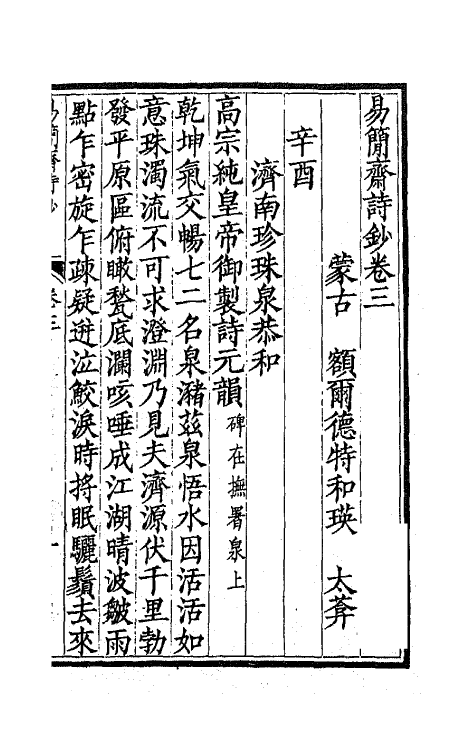 易簡齋詩鈔卷三
蒙古 額爾德特和瑛 太葊
辛酉
濟南珍珠泉恭和
高宗純皇帝御製詩元韻 碑在撫署泉上
乾坤氣交暢七二名泉瀦茲泉悟水因活活如
意珠濁流不可求澄淵乃見夫濟源伏千里勃
發平原區俯瞰甃底瀾咳唾成江湖晴波皺雨
點乍密旋乍疎疑逬泣鮫淚時將眠驪鬚去來
易簡齋詩鈔 卷三 一